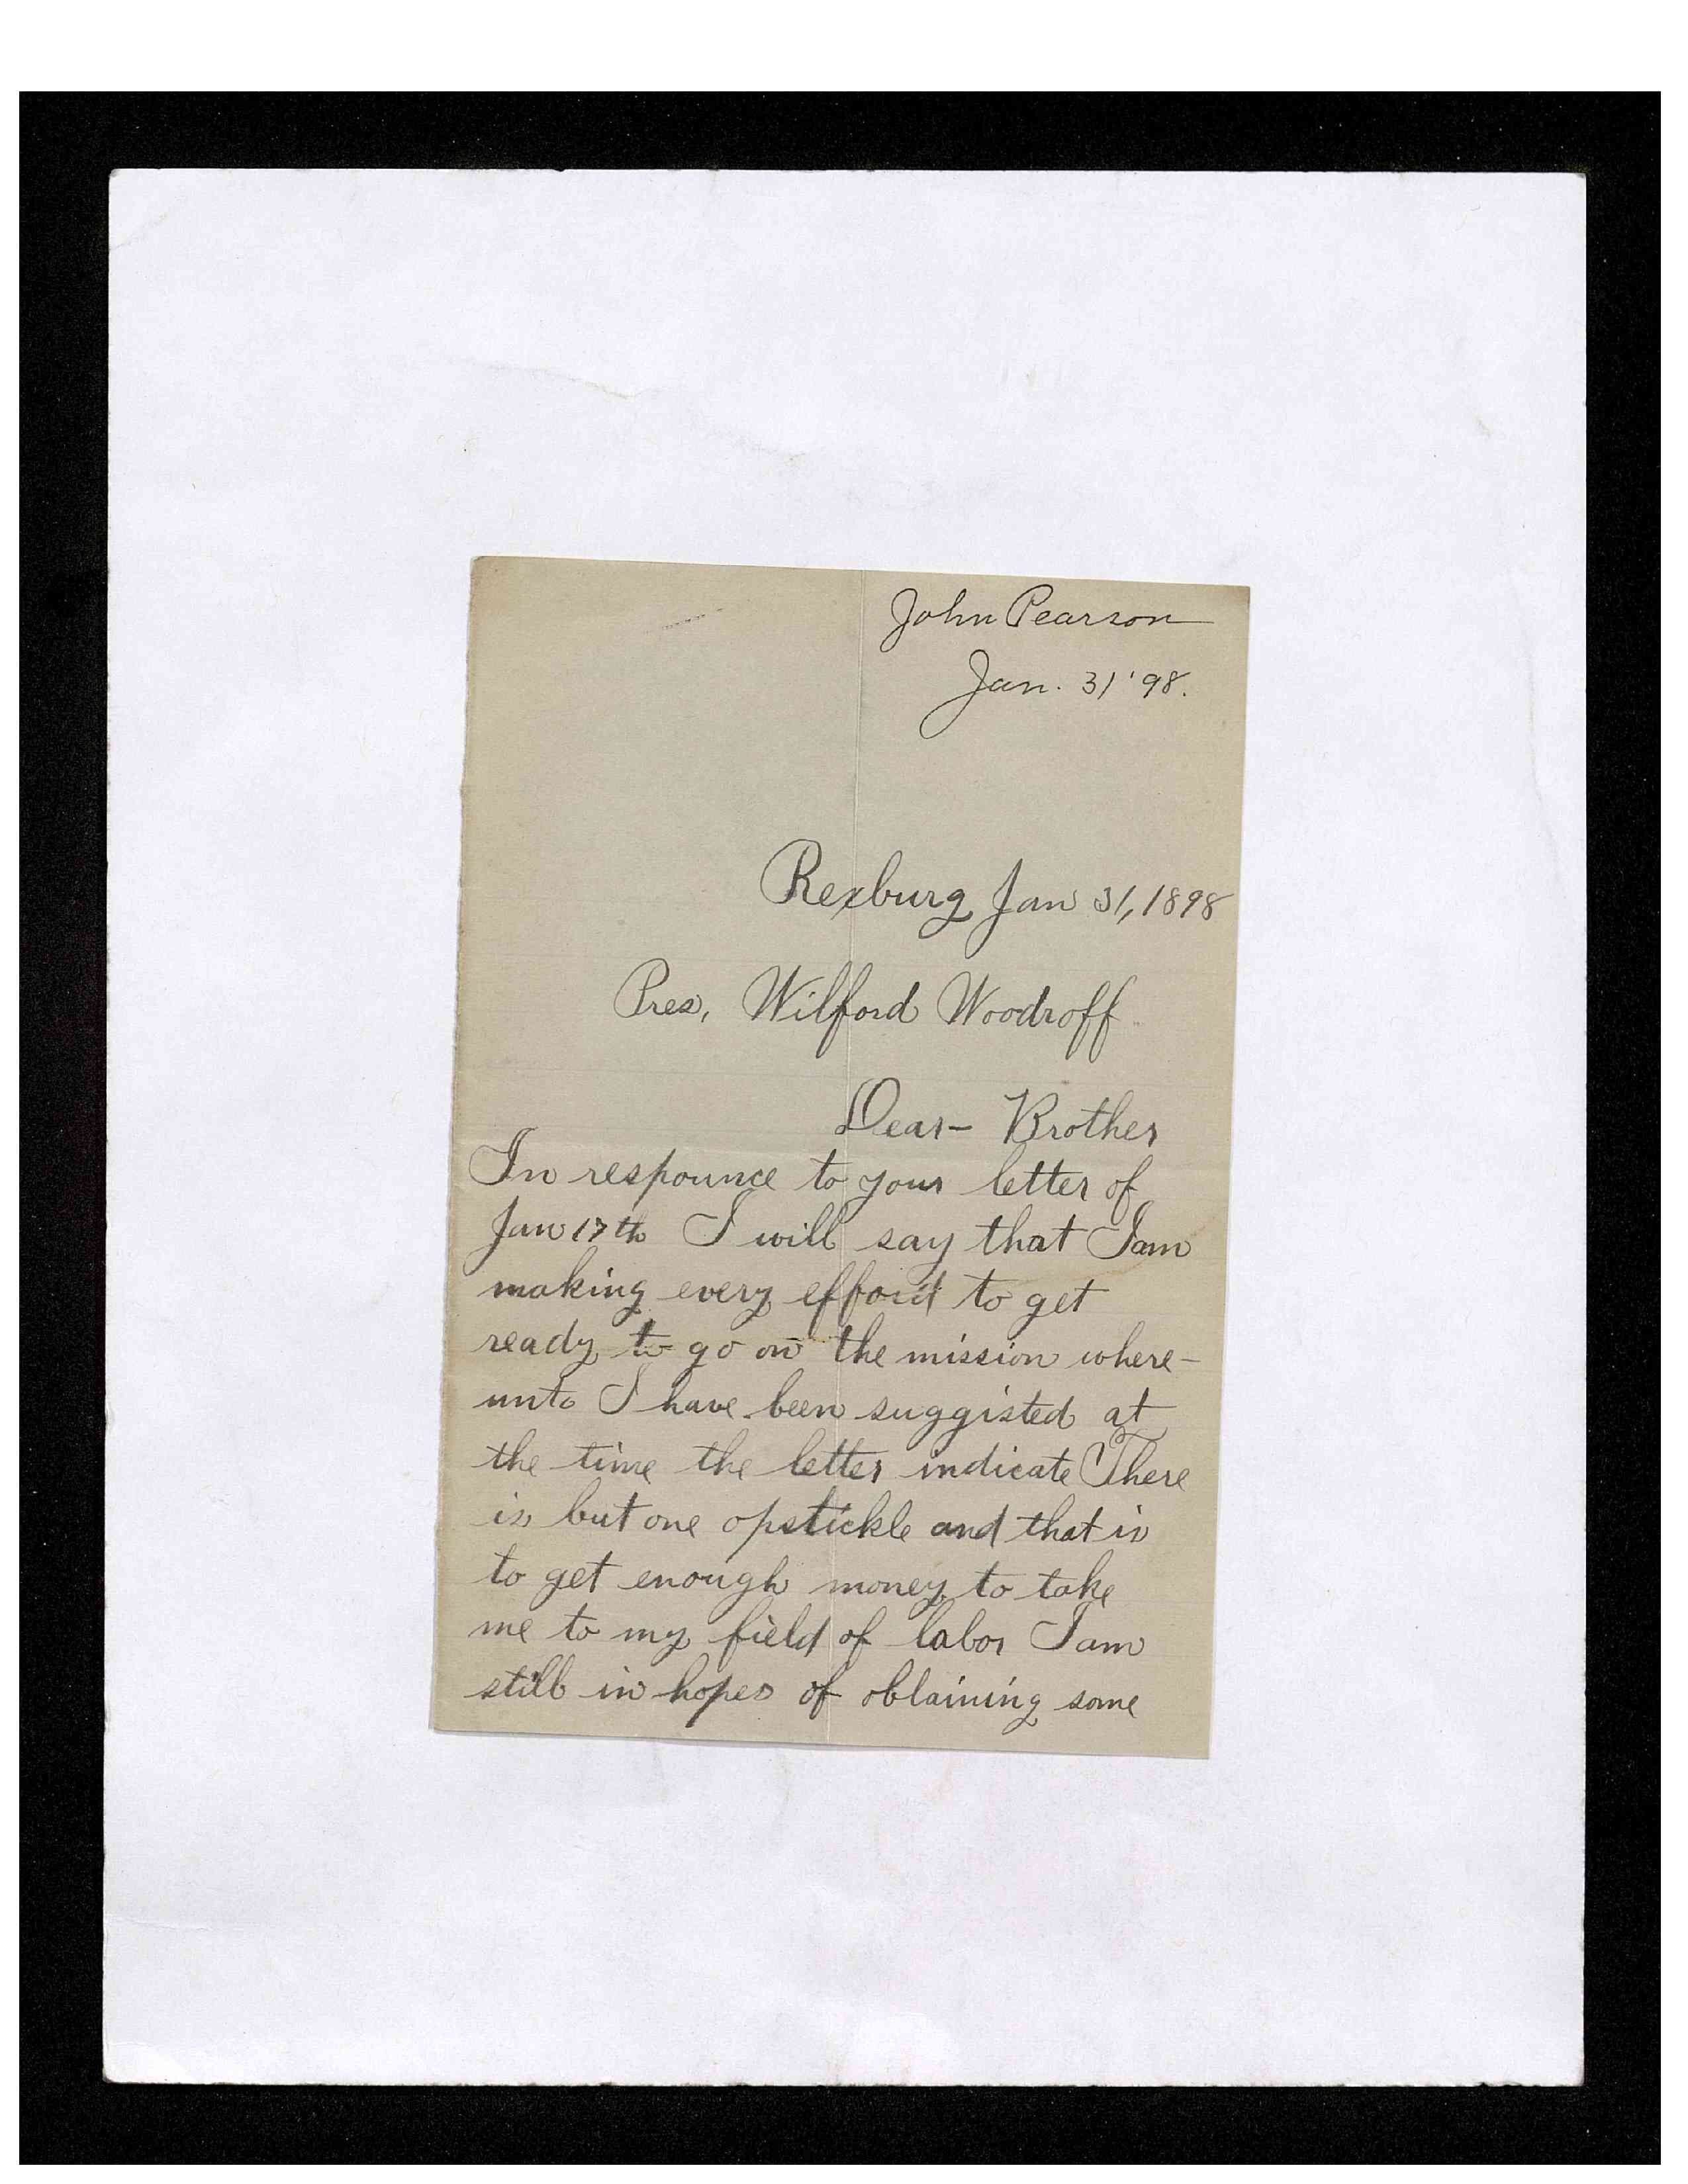 John Pearson
Jan. 31 '98.
Rexburg Jan 31, 1898
Pres, Wilford Woodroff
Dear- Brother
In respounce to your letter of
Jan 17th I will say that I am
making every efford to get
ready to go on the mission where-
unto I have been suggisted at
the time the letter indicate There
is but one opstickle and that is
to get enough money to take
me to my field of labor I am
still in hopes of obtaining some